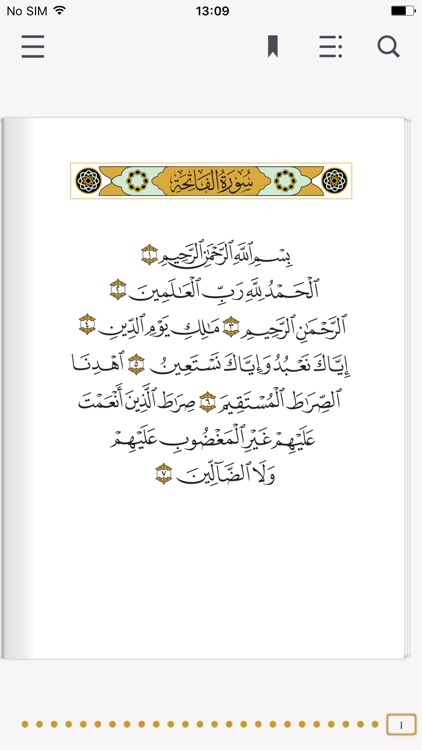 No SIM
13:09
سُورَةُ الفَاتِحَةِ
بِسْمِ ٱللَّهِ ٱلرَّحْمَٰنِ ٱلرَّحِيمِ ١
ٱلْحَمْدُ لِلَّهِ رَبِّ ٱلْعَٰلَمِينَ ٢
ٱلرَّحْمَٰنِ ٱلرَّحِيمِ ٣ مَٰلِكِ يَوْمِ ٱلدِّينِ ٤
إِيَّاكَ نَعْبُدُ وَإِيَّاكَ نَسْتَعِينُ ٥ ٱهْدِنَا
ٱلصِّرَٰطَ ٱلْمُسْتَقِيمَ ٦ صِرَٰطَ ٱلَّذِينَ أَنْعَمْتَ
عَلَيْهِمْ غَيْرِ ٱلْمَغْضُوبِ عَلَيْهِمْ
وَلَا ٱلضَّآلِّينَ ٧
١